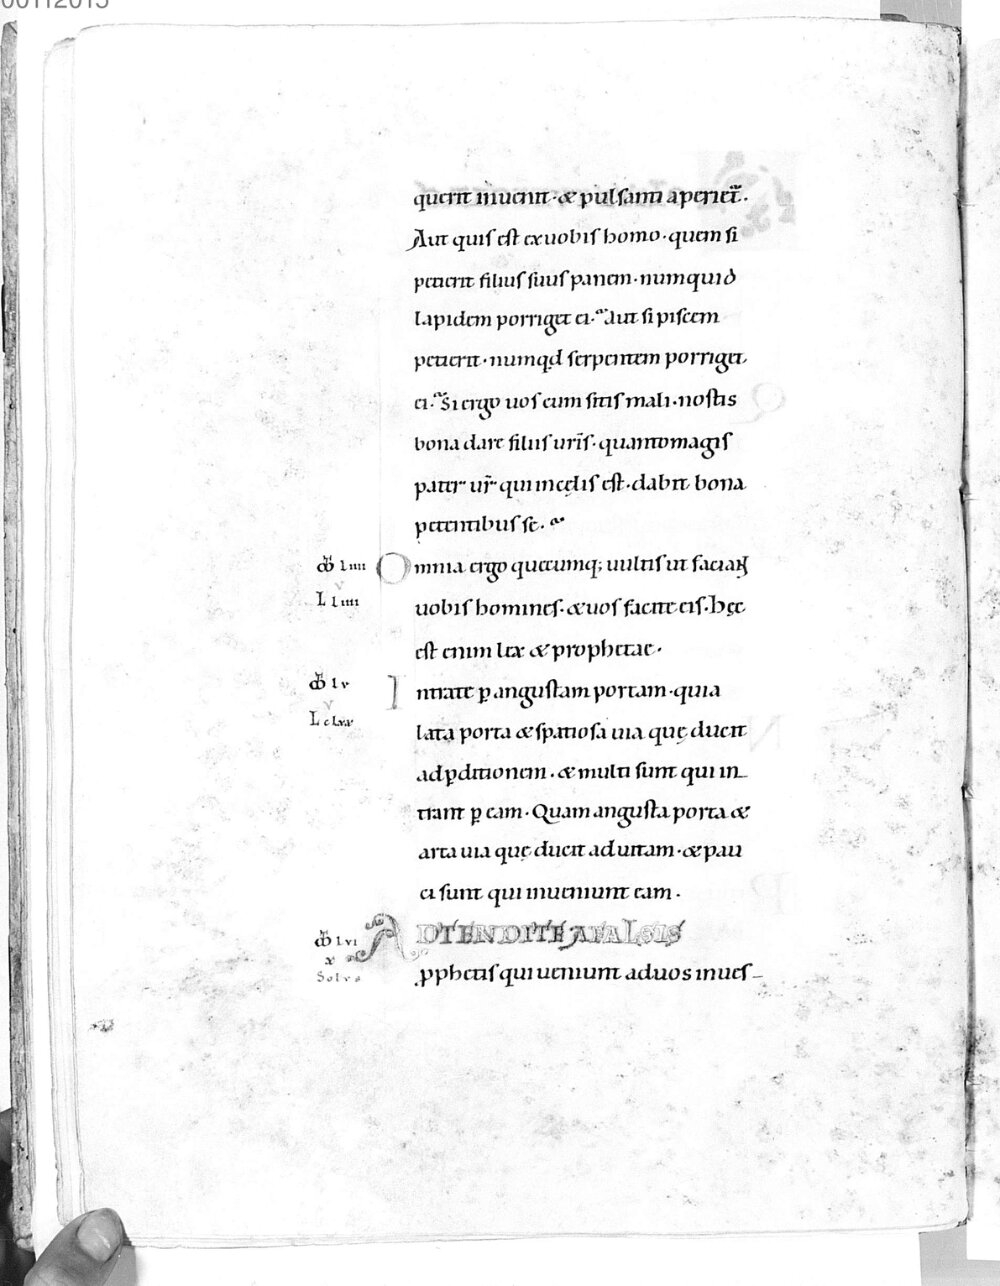 querit inuenit · & pulsanti aperiet̃ ·
Aut quis est ex uobis homo · quem si
petierit filius suus panem · numquid
lapidem porriget ei · Aut si piscem
petierit · numqd serpentem porriget
ei · Si ergo uos cum sitis mali · nostis
bona dare filiis uris̃ · quantomagis
pater ur̃ qui incęlis est · dabit bona
petentibus se ·
Mt Liiii
L Liiii
Omnia ergo quecumq; uultis ut faciaꝶ
uobis homines · & uos facite eis · hęc
est enim lex & prophetae ·
Mt Lv
L clxx
Intrate ꝑ angustam portam · quia
lata porta & spatiosa uia quę ducit
adꝑditionem · & multi sunt qui in
trant ꝑ eam · Quam angusta porta &
arta uia quę ducit ad uitam · & pau
ci sunt qui inueniunt eam ·
Mt Lvi
x
Solus
ADTENDITE A FALSIS
ꝓphetis qui ueniunt aduos inues